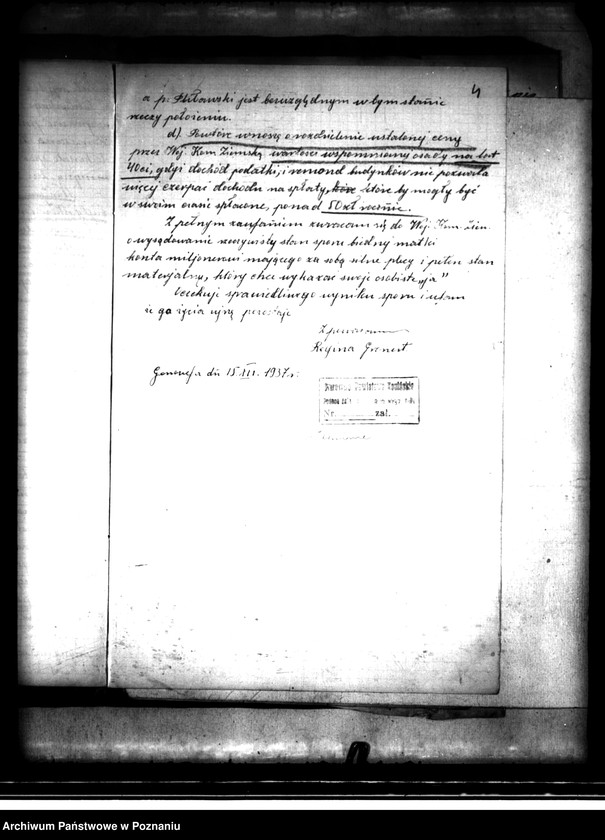 4
a p. jest bezwzględnym w tym stanie
rzeczy położeniu.
d) Powtórz wnoszę o rozdzielenie ustalonej ceny
przez Woj. Kom. Ziemską wartości wspomnianej osady na lat
40ci, gdyż dochód podatki, i remond budynków nie pozwala
więcej czerpać dochodu na spłaty, które by mogły być
w swoim czasie spłacone, ponad 50 zł rocznie.
Z pełnym zaufaniem zwracam się do Woj. Kom. Ziem.
o stan sporu biednej matki
konta mającego za sobą silne plecy i pełen stan
materjalny, który chce wykazać swoje osobiste "ja"
Oczekuję sprawiedliwego wyniku sporu i ufam
że go życia pozostaję
Z poważaniem
Regina Grenert
Genowefa dn 15.III. 1937 r.
Nr. zał.
Archiwum Państwowe w Poznaniu